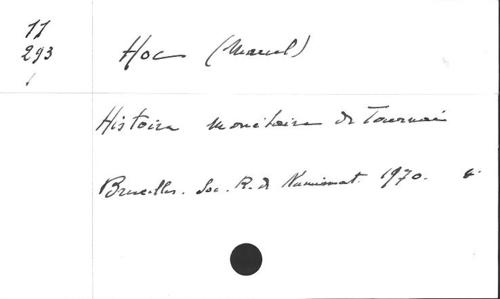 11
293
Hoc (Marcel)
Histoire monétaire de Tournai
Bruxelles. Soc. R. de Numismat. 1970.